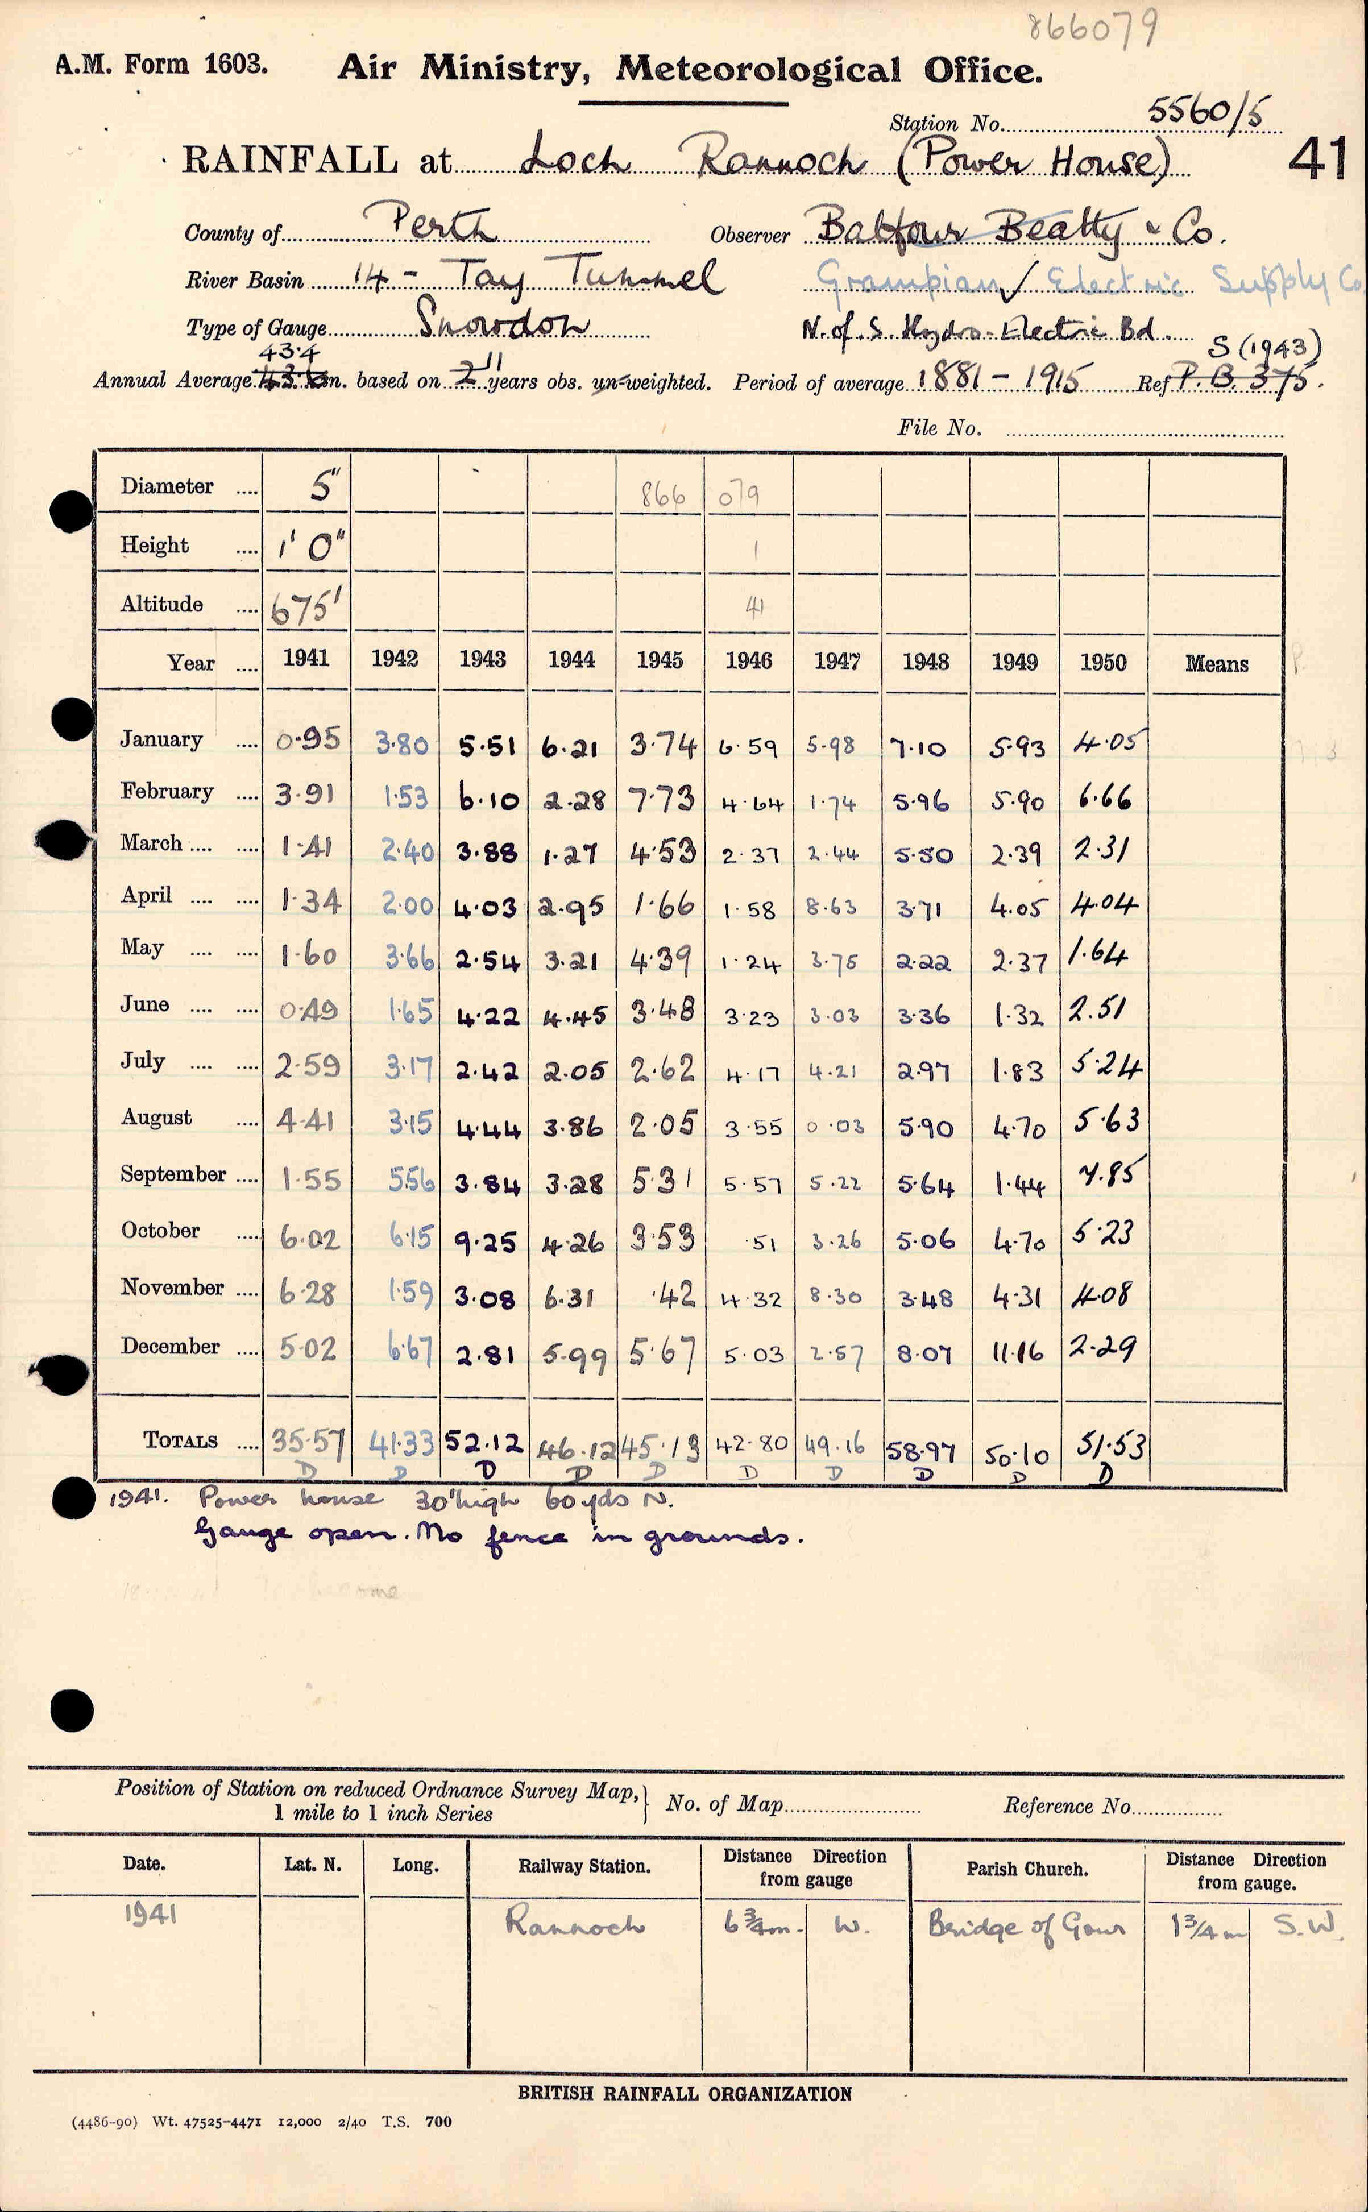 866079
A.M. Form 1603. Air Ministry, Meteorological Office.
Station No. 5560/5
RAINFALL at Loch Rannoch (Power House) 41
County of Perth Observer Balfour Beatty & Co.
River Basin 14 - Tay Tummel Grampian ✓ Electric Supply Co
Type of Gauge Snowdon N. of S. Hydro-Electric Bd.
43.4 11 S (1943)
Annual Average 43.6 in. based on 2 years obs. un-weighted. Period of average 1881 - 1915 Ref P.B. 375.
File No.
Diameter .... 5" 866 079
Height .... 1' 0" 1
Altitude .... 675' 41
Year .... 1941 1942 1943 1944 1945 1946 1947 1948 1949 1950 Means
January .... 0.95 3.80 5.51 6.21 3.74 6.59 5.98 7.10 5.93 4.05
February .... 3.91 1.53 6.10 2.28 7.73 4.64 1.74 5.96 5.90 6.66
March .... .... 1.41 2.40 3.88 1.27 4.53 2.37 2.44 5.50 2.39 2.31
April .... .... 1.34 2.00 4.03 2.95 1.66 1.58 8.63 3.71 4.05 4.04
May .... .... 1.60 3.66 2.54 3.21 4.39 1.24 3.75 2.22 2.37 1.64
June .... .... 0.49 1.65 4.22 4.45 3.48 3.23 3.03 3.36 1.32 2.51
July .... .... 2.59 3.17 2.42 2.05 2.62 4.17 4.21 2.97 1.83 5.24
August .... 4.41 3.15 4.44 3.86 2.05 3.55 0.03 5.90 4.70 5.63
September .... 1.55 5.56 3.84 3.28 5.31 5.57 5.22 5.64 1.44 7.85
October .... 6.02 6.15 9.25 4.26 3.53 .51 3.26 5.06 4.70 5.23
November .... 6.28 1.59 3.08 6.31 .42 4.32 8.30 3.48 4.31 4.08
December .... 5.02 6.67 2.81 5.99 5.67 5.03 2.57 8.07 11.16 2.29
TOTALS .... 35.57 41.33 52.12 46.12 45.13 42.80 49.16 58.97 50.10 51.53
D D D D D D D D D D
1941. Power house 30' high 60 yds N.
Gauge open. No fence in grounds.
Position of Station on reduced Ordnance Survey Map, } No. of Map Reference No.
1 mile to 1 inch Series
Date. Lat. N. Long. Railway Station. Distance Direction from gauge Parish Church. Distance Direction from gauge.
1941 Rannoch 6 3/4 m. W. Bridge of Gaur 1 3/4 m S.W.
BRITISH RAINFALL ORGANIZATION
(4486-90) Wt. 47525-4471 12,000 2/40 T.S. 700